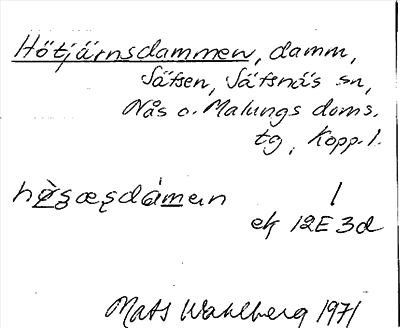 Hötjärnsdammen, damm,
Säfsen, Säfsnäs sn,
Nås o. Malungs doms.
tg, Kopp. l.
/
ek 12E 3d
Mats Wahlberg 1971